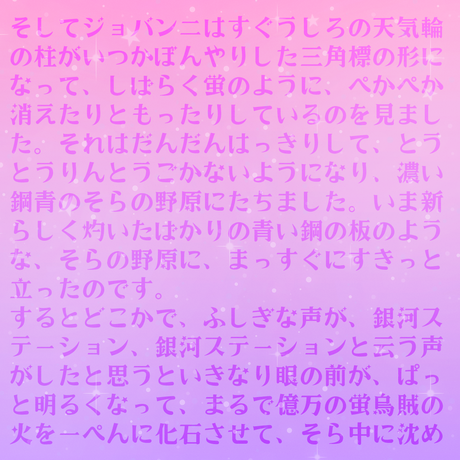 そしてジョバンニはすぐうしろの天気輪
の柱がいつかぼんやりした三角標の形に
なって、しばらく蛍のように、ぺかぺか
消えたりともったりしているのを見まし
た。それはだんだんはっきりして、とう
とうりんとうごかないようになり、濃い
鋼青のそらの野原にたちました。いま新
らしく灼いたばかりの青い鋼の板のよう
な、そらの野原に、まっすぐにすきっと
立ったのです。
するとどこかで、ふしぎな声が、銀河ス
テーション、銀河ステーションと云う声
がしたと思うといきなり眼の前が、ぱっ
と明るくなって、まるで億万の蛍烏賊の
火を一ぺんに化石させて、そら中に沈め